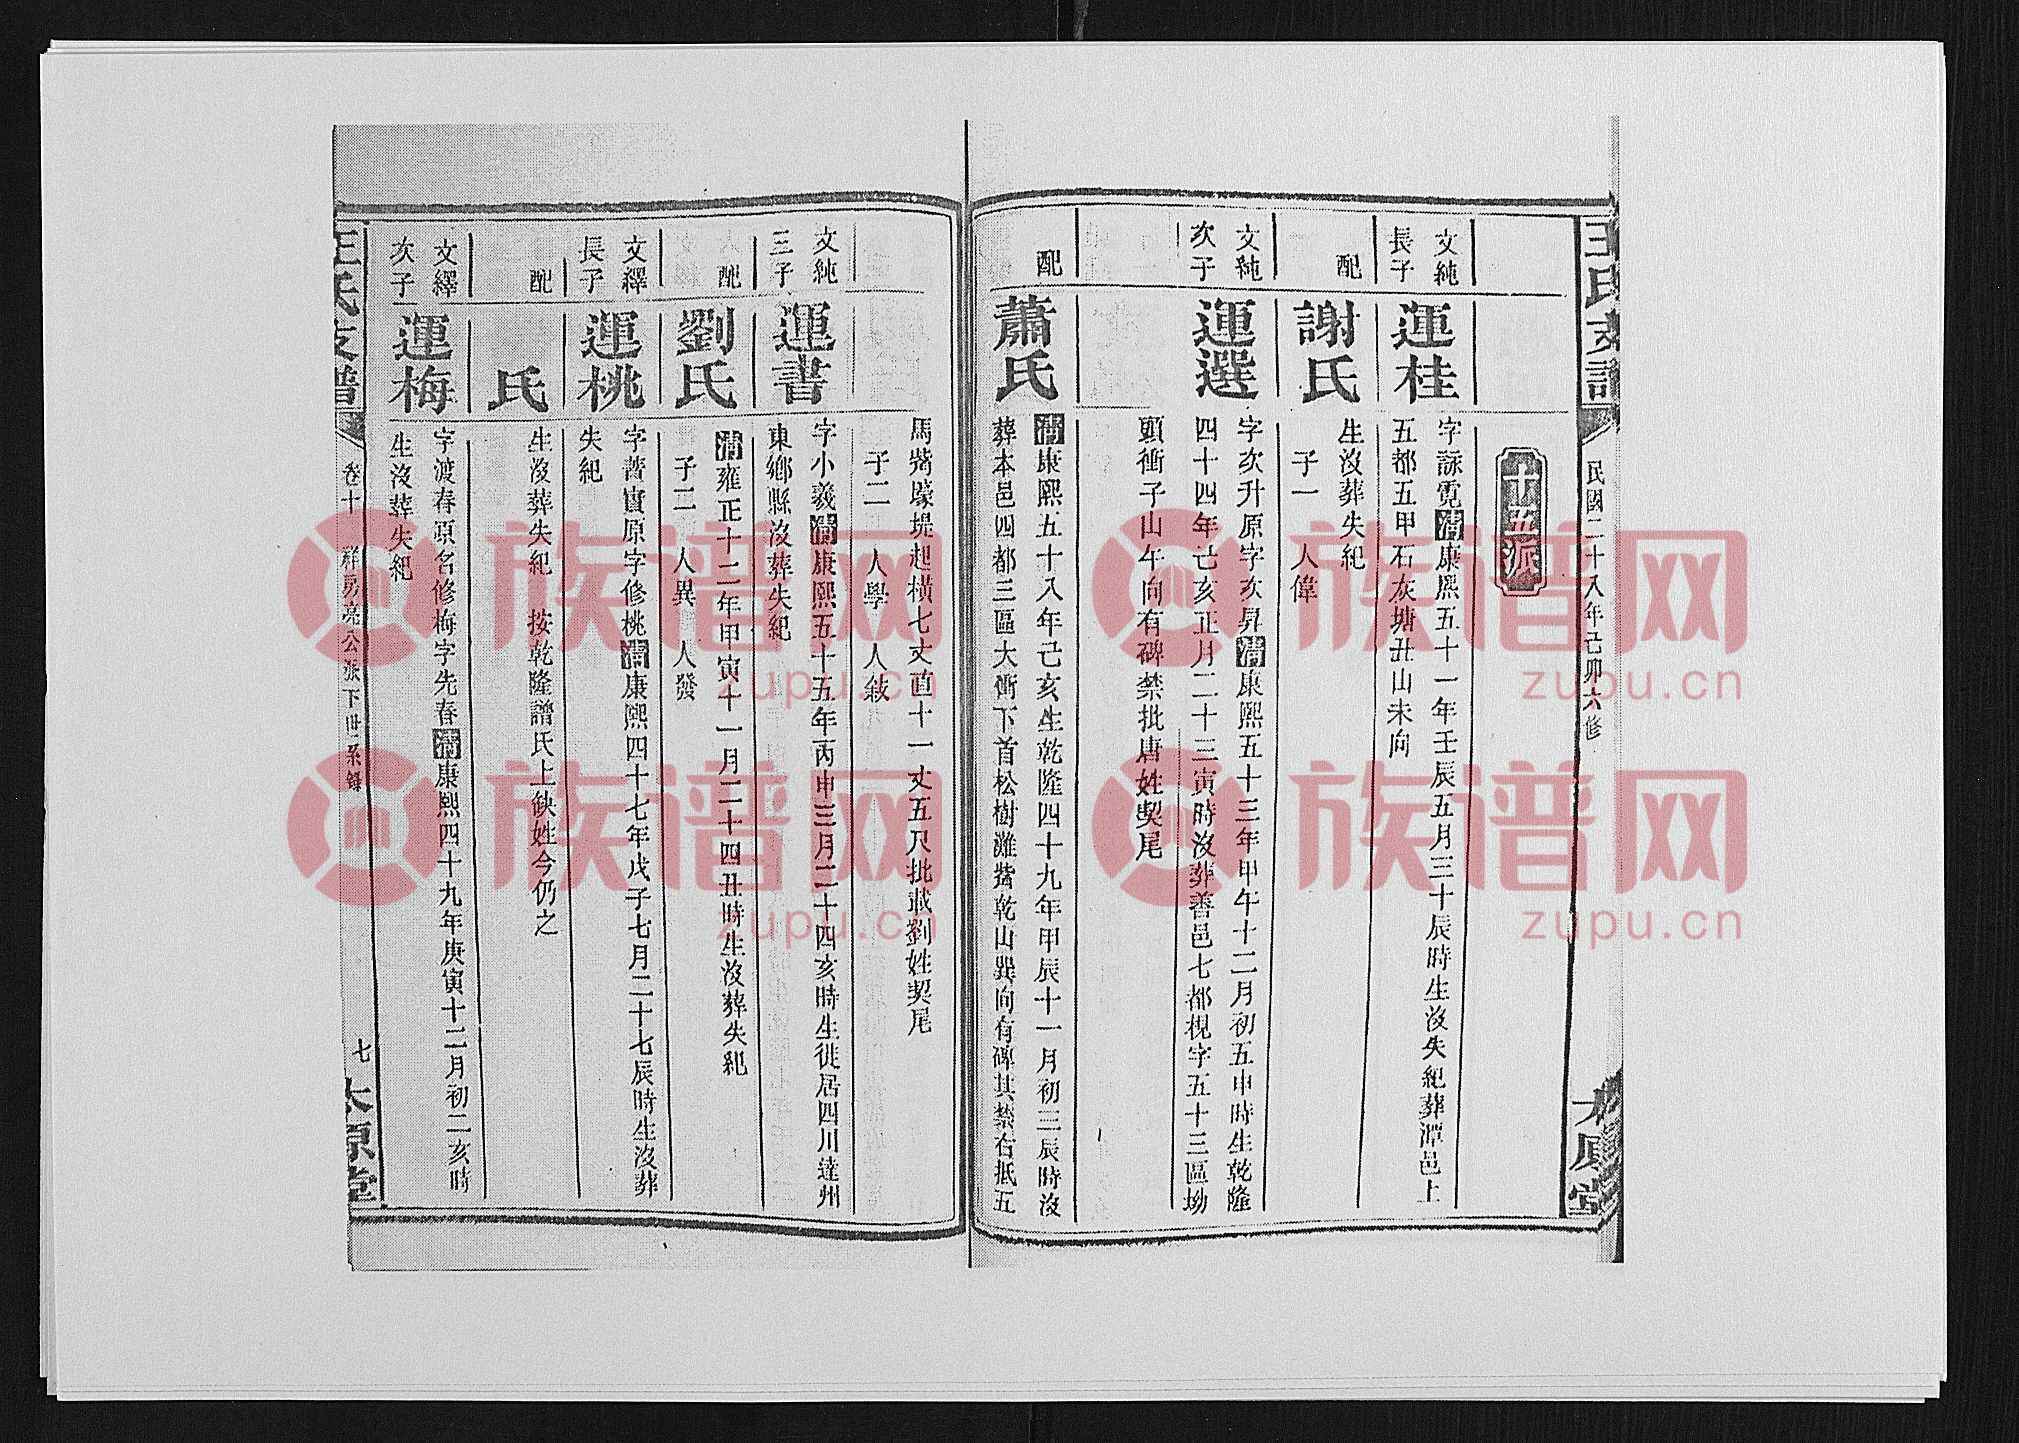 王氏支譜
民國二十八年己卯六修
太原堂
十五派
文純長子
運桂
字詠霓清康熙五十一年壬辰五月三十辰時生沒失紀葬潭邑上
五都五甲石灰塘丑山未向
配
謝氏
生沒葬失紀
子一 人偉
文純次子
運選
字次升原字亥昇清康熙五十三年甲午十二月初五申時生乾隆
四十四年己亥正月二十三寅時沒葬善邑七都槻字五十三區坳
頭衝子山午向有碑禁批唐姓契尾
配
蕭氏
清康熙五十八年己亥生乾隆四十九年甲辰十一月初三辰時沒
葬本邑四都三區大衝下首松樹灘觜乾山巽向有碑其禁右抵五
馬觜壕堤起橫七丈直十一丈五尺批載劉姓契尾
子二 人學 人敍
文純三子
運書
字小羲清康熙五十五年丙申三月二十四亥時生徙居四川達州
東鄉縣沒葬失紀
配
劉氏
清雍正十二年甲寅十一月二十四丑時生沒葬失紀
子二 人異 人發
文繹長子
運桃
字蕡實原字修桃清康熙四十七年戊子七月二十七辰時生沒葬
失紀
配
氏
生沒葬失紀 按乾隆譜氏上缺姓今仍之
文繹次子
運梅
字渡春原名修梅字先春清康熙四十九年庚寅十二月初二亥時
生沒葬失紀
王氏支譜
卷十 祥房亮公張下世系錄
七
太原堂
族谱网
zupu.cn
族谱网
zupu.cn
族谱网
zupu.cn
族谱网
zupu.cn